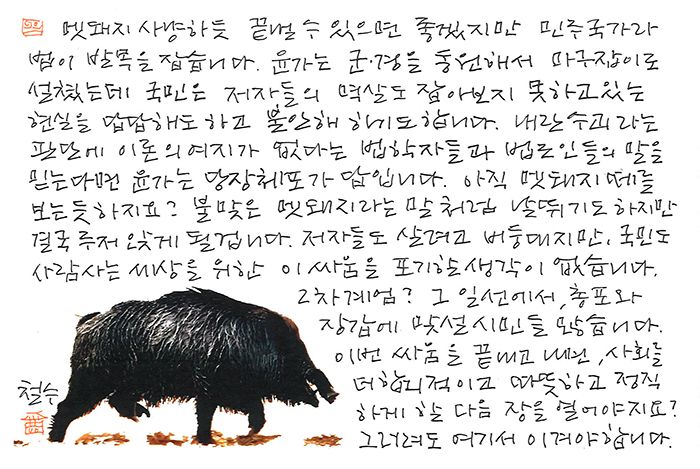 멧돼지 사냥하듯 끝낼 수 있으면 좋겠지만 민주국가라
법이 발목을 잡습니다. 윤가는 군·경을 동원해서 마구잡이로
설쳤는데 국민은 저자들의 멱살도 잡아보지 못하고 있는
현실을 답답해도 하고 불안해 하기도 합니다. 내란수괴라는
판단에 이론의 여지가 없다는 법학자들과 법조인들의 말을
믿는다면 윤가는 당장 체포가 답입니다. 아직 멧돼지 떼를
보는듯 하지요? 불맞은 멧돼지라는 말처럼 날뛰기도 하지만
결국 주저 앉게 될겁니다. 저자들도 살려고 버둥대지만, 국민도
사람사는 세상을 위한 이 싸움을 포기할 생각이 없습니다.
2차계엄? 그 일선에서, 총포와
장갑에 맞설 시민들 많습니다.
이번 싸움을 끝내고 나면, 사회를
더 합리적이고 따뜻하고 정직
하게 할 다음 장을 열어야지요?
그러려도 여기서 이겨야합니다.
철수